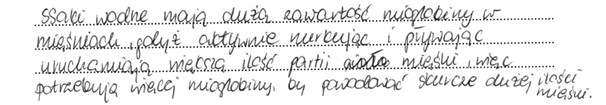 ssaki wodne mają dużą zawartość mioglobiny w
mięśniach, gdyż aktywnie nurkując i pływając
uruchamiają większą ilość partii mięśni, więc
potrzebują więcej mioglobiny, by powodować skurcze dużej ilości
mięśni.